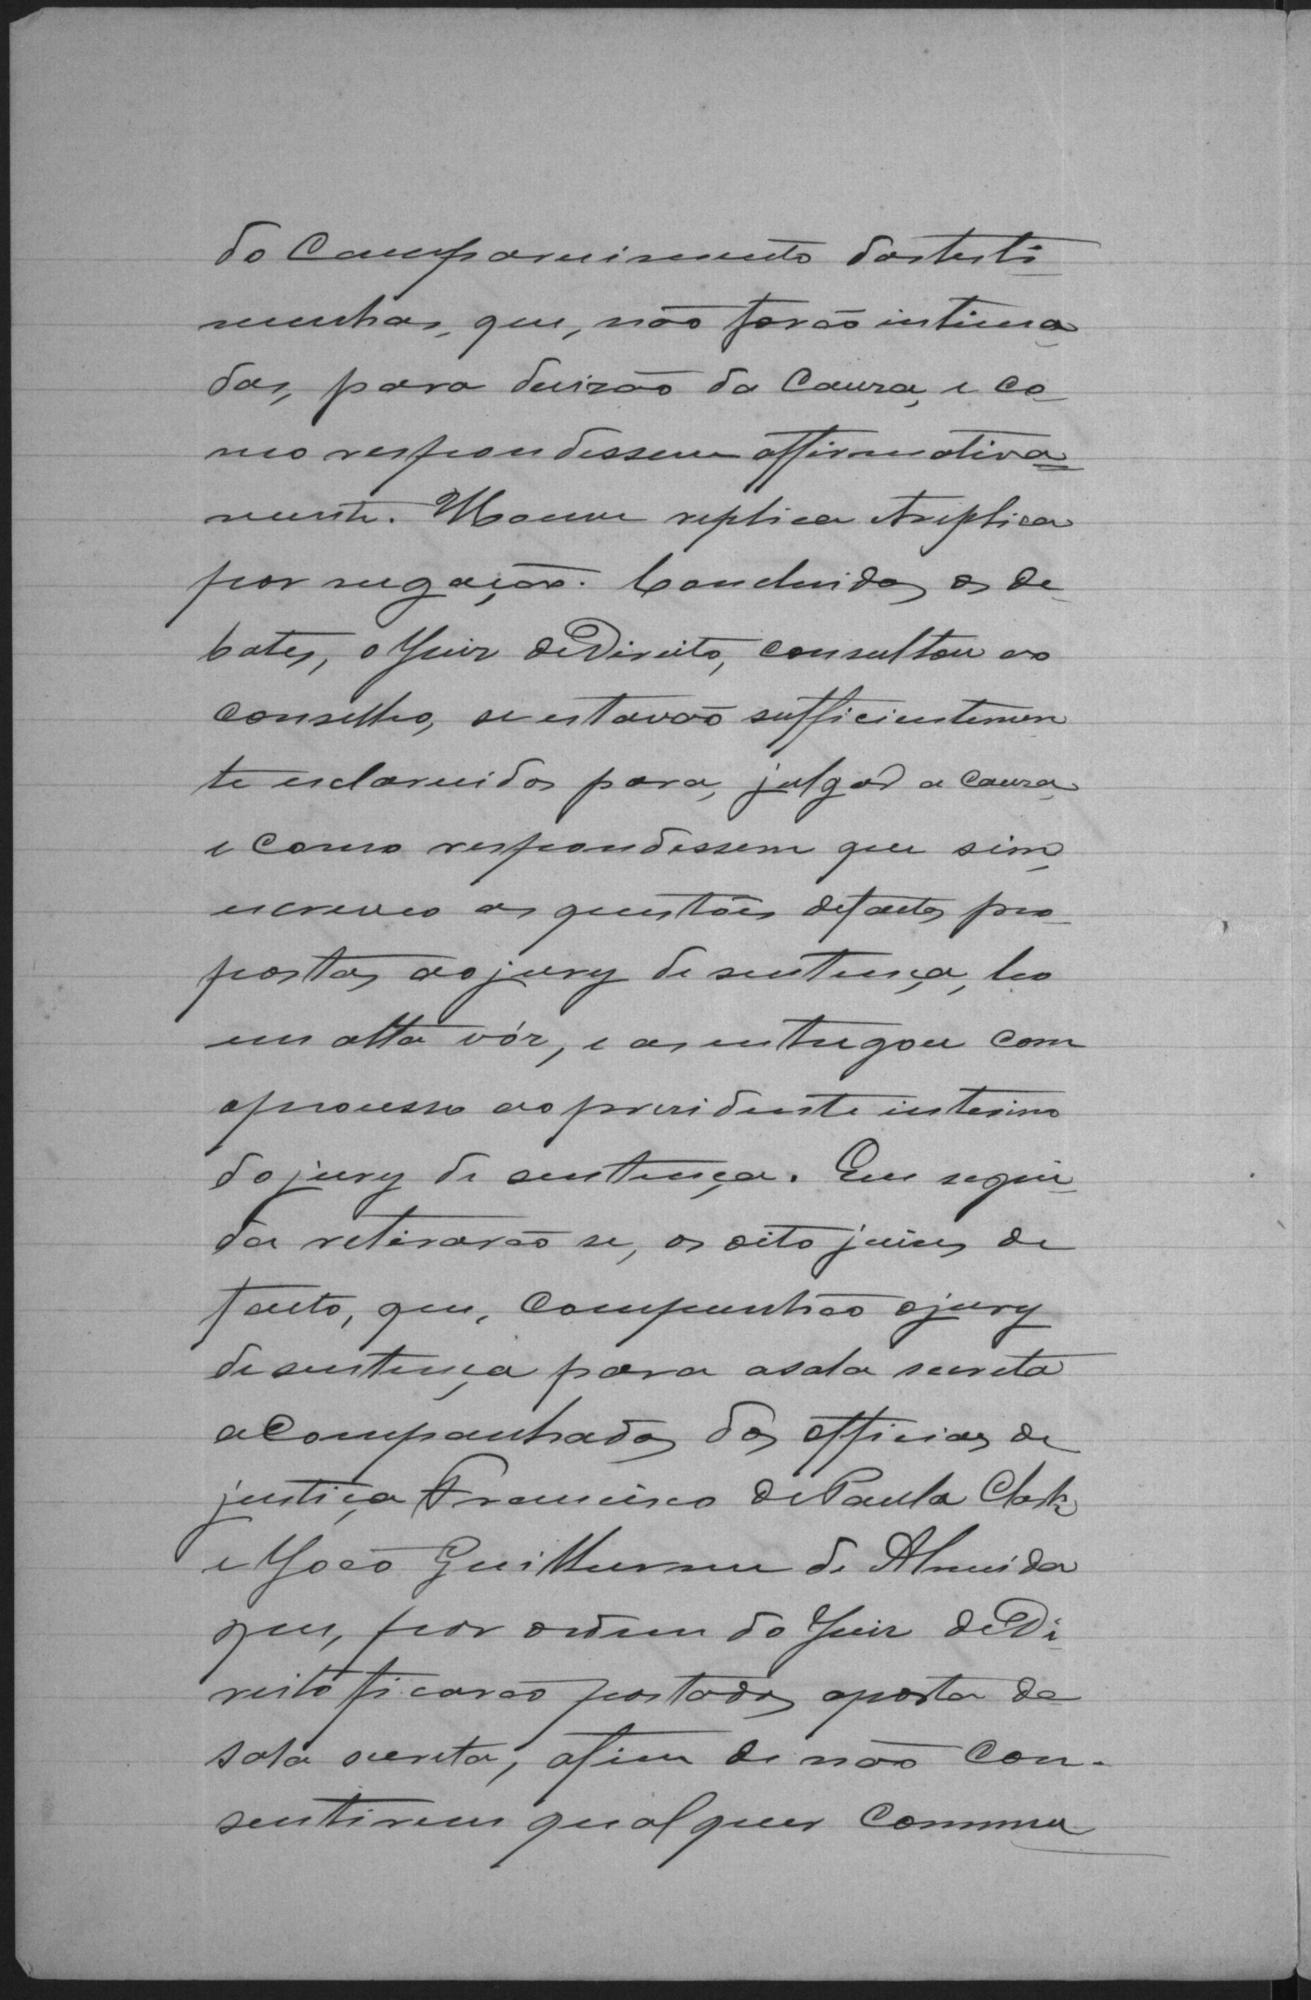 do Comparecimento dastesti
munhas, que, não forão intima
das, para decizão da Cauza, e co
mo respondessem affirmativa=
mente. Houve replica etriplica
por negação. Concluidos os de
bates, o Juiz deDireito, consultou ao
conselho, se estavão sufficientemen
te esclarecidos para, julgar a cauza
e como respondessem que sim,
escreveo as questões defactos pro
postas aojury de sentença, leo
em alta vóz, e as entregou com
oprocesso ao prezidente interino
dojury de sentença. Em segui
da retirarão se, os oito juizes de
facto, que, Compunhão ojury
de sentença para asala secreta
acompanhados dos officiaes de
justiça Francisco dePaula Clark
e João Guilherme de Almeida
que, por ordem do Juiz deDi
reito ficarão postados aporta da
sala secreta, afim de não con-
sentirem qualquer commu